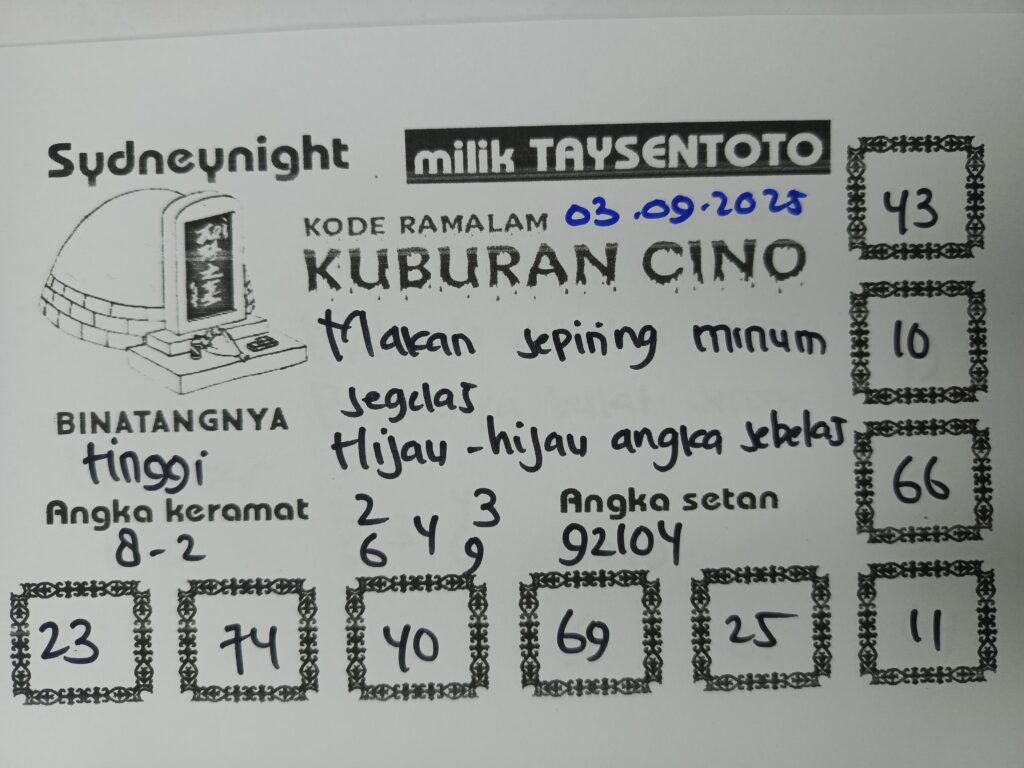 Sydneynight
milik TAYSENTOTO
KODE RAMALAM 03.09.2025
KUBURAN CINO
Makan sepiring minum
segelas
Hijau - hijau angka sebelas
BINATANGNYA
tinggi
Angka keramat
8-2
2 3
4
6 9
Angka setan
92104
43
10
66
23 74 40 69 25 11